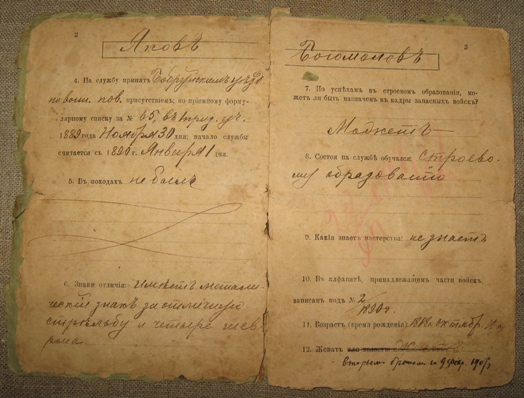 2
Яковъ
4. На службу принятъ Бобруйскимъ уѣзд
по воин. пов. присутствіемъ; по пріемному форму-
лярному списку за № 65, въ
1889 года Ноября 30 дня; начало службы
считается съ 1890 г. Января 1 дня.
5. Въ походахъ не былъ
6. Знаки отличія: Имѣетъ
знакъ за отличную
стрѣльбу и четыре
3
Богомоловъ
7. По успѣхамъ въ строевомъ образованіи, мо-
жетъ ли быть назначенъ въ кадры запасныхъ войскъ?
Можетъ
8. Состоя на службѣ обучался: строево-
му образованію
9. Какія знаетъ мастерства: не знаетъ
10. Въ алфавитѣ, принадлежащемъ части войскъ
записанъ подъ № 2
11. Возрастъ (время рожденія):
12. Женатъ или холостъ
вторымъ бракомъ